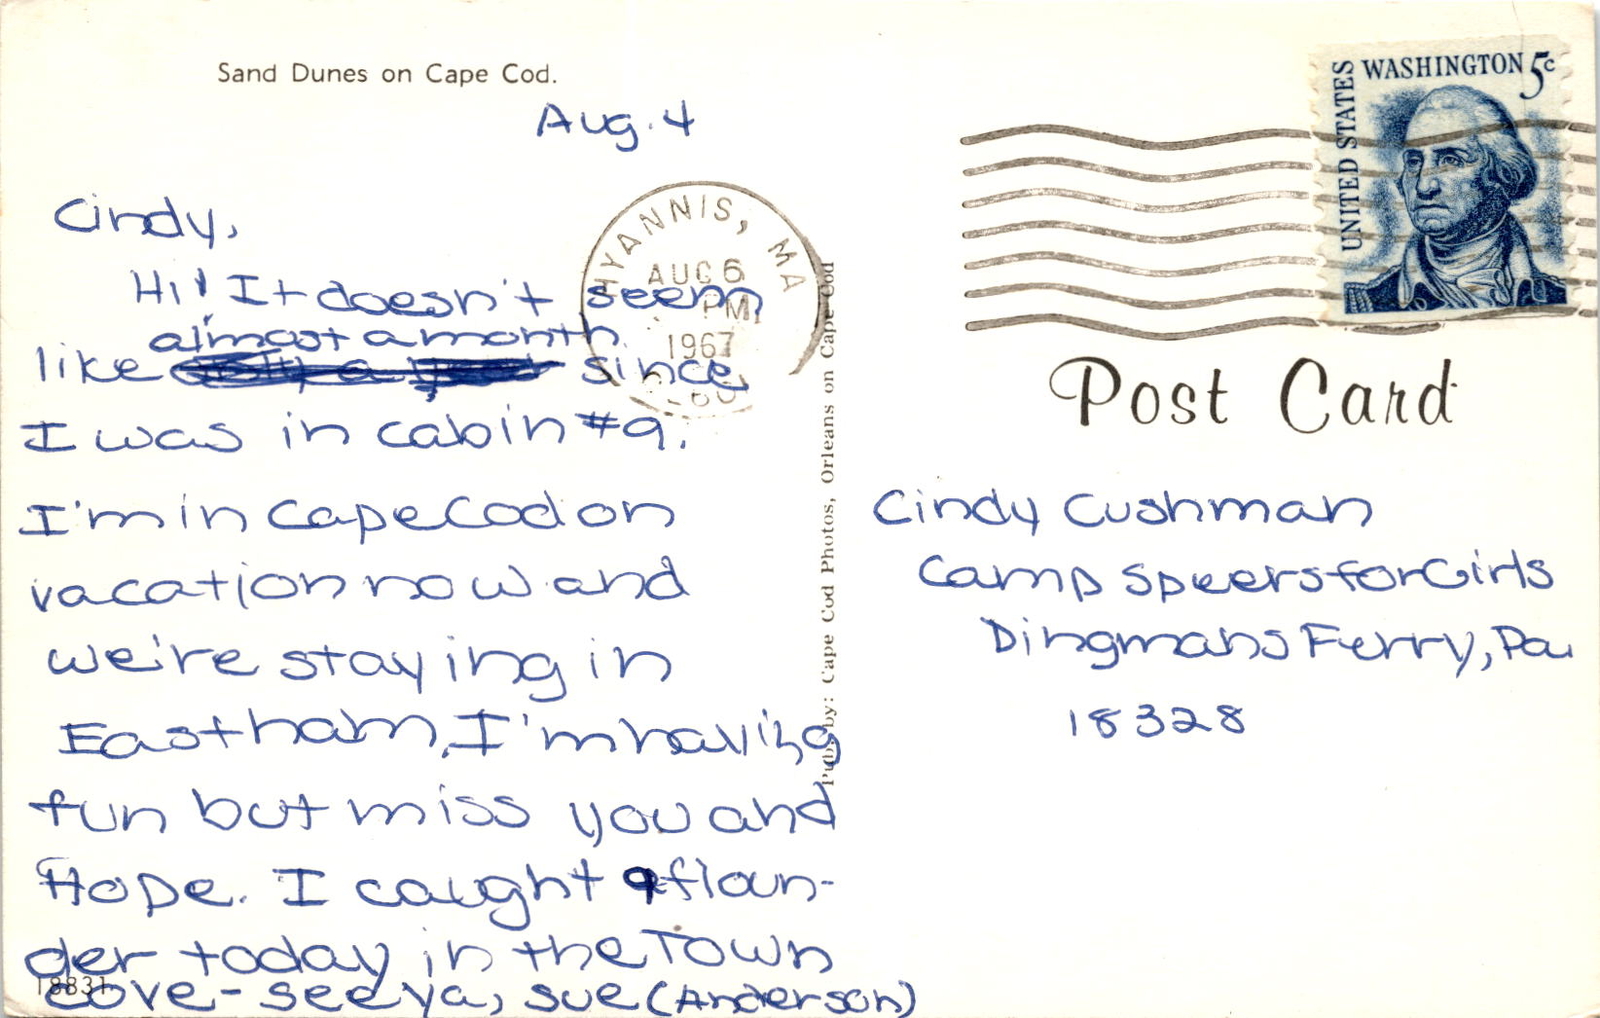 Sand Dunes on Cape Cod.
Aug. 4
Cindy,
Hi! It doesn't seem
almost a month
like since
I was in cabin #9.
I'm in Cape Cod on
vacation now and
we're staying in
Eastham, I'm having
fun but miss you and
Hope. I caught 9 floun-
der today in the Town
cove - see ya, Sue (Anderson)
18831
HYANNIS, MA
AUG 6
PM
1967
Pub. by: Cape Cod Photos, Orleans on Cape Cod
UNITED STATES
WASHINGTON 5c
Post Card
Cindy Cushman
Camp Speers for Girls
Dingmans Ferry, Pa.
18328